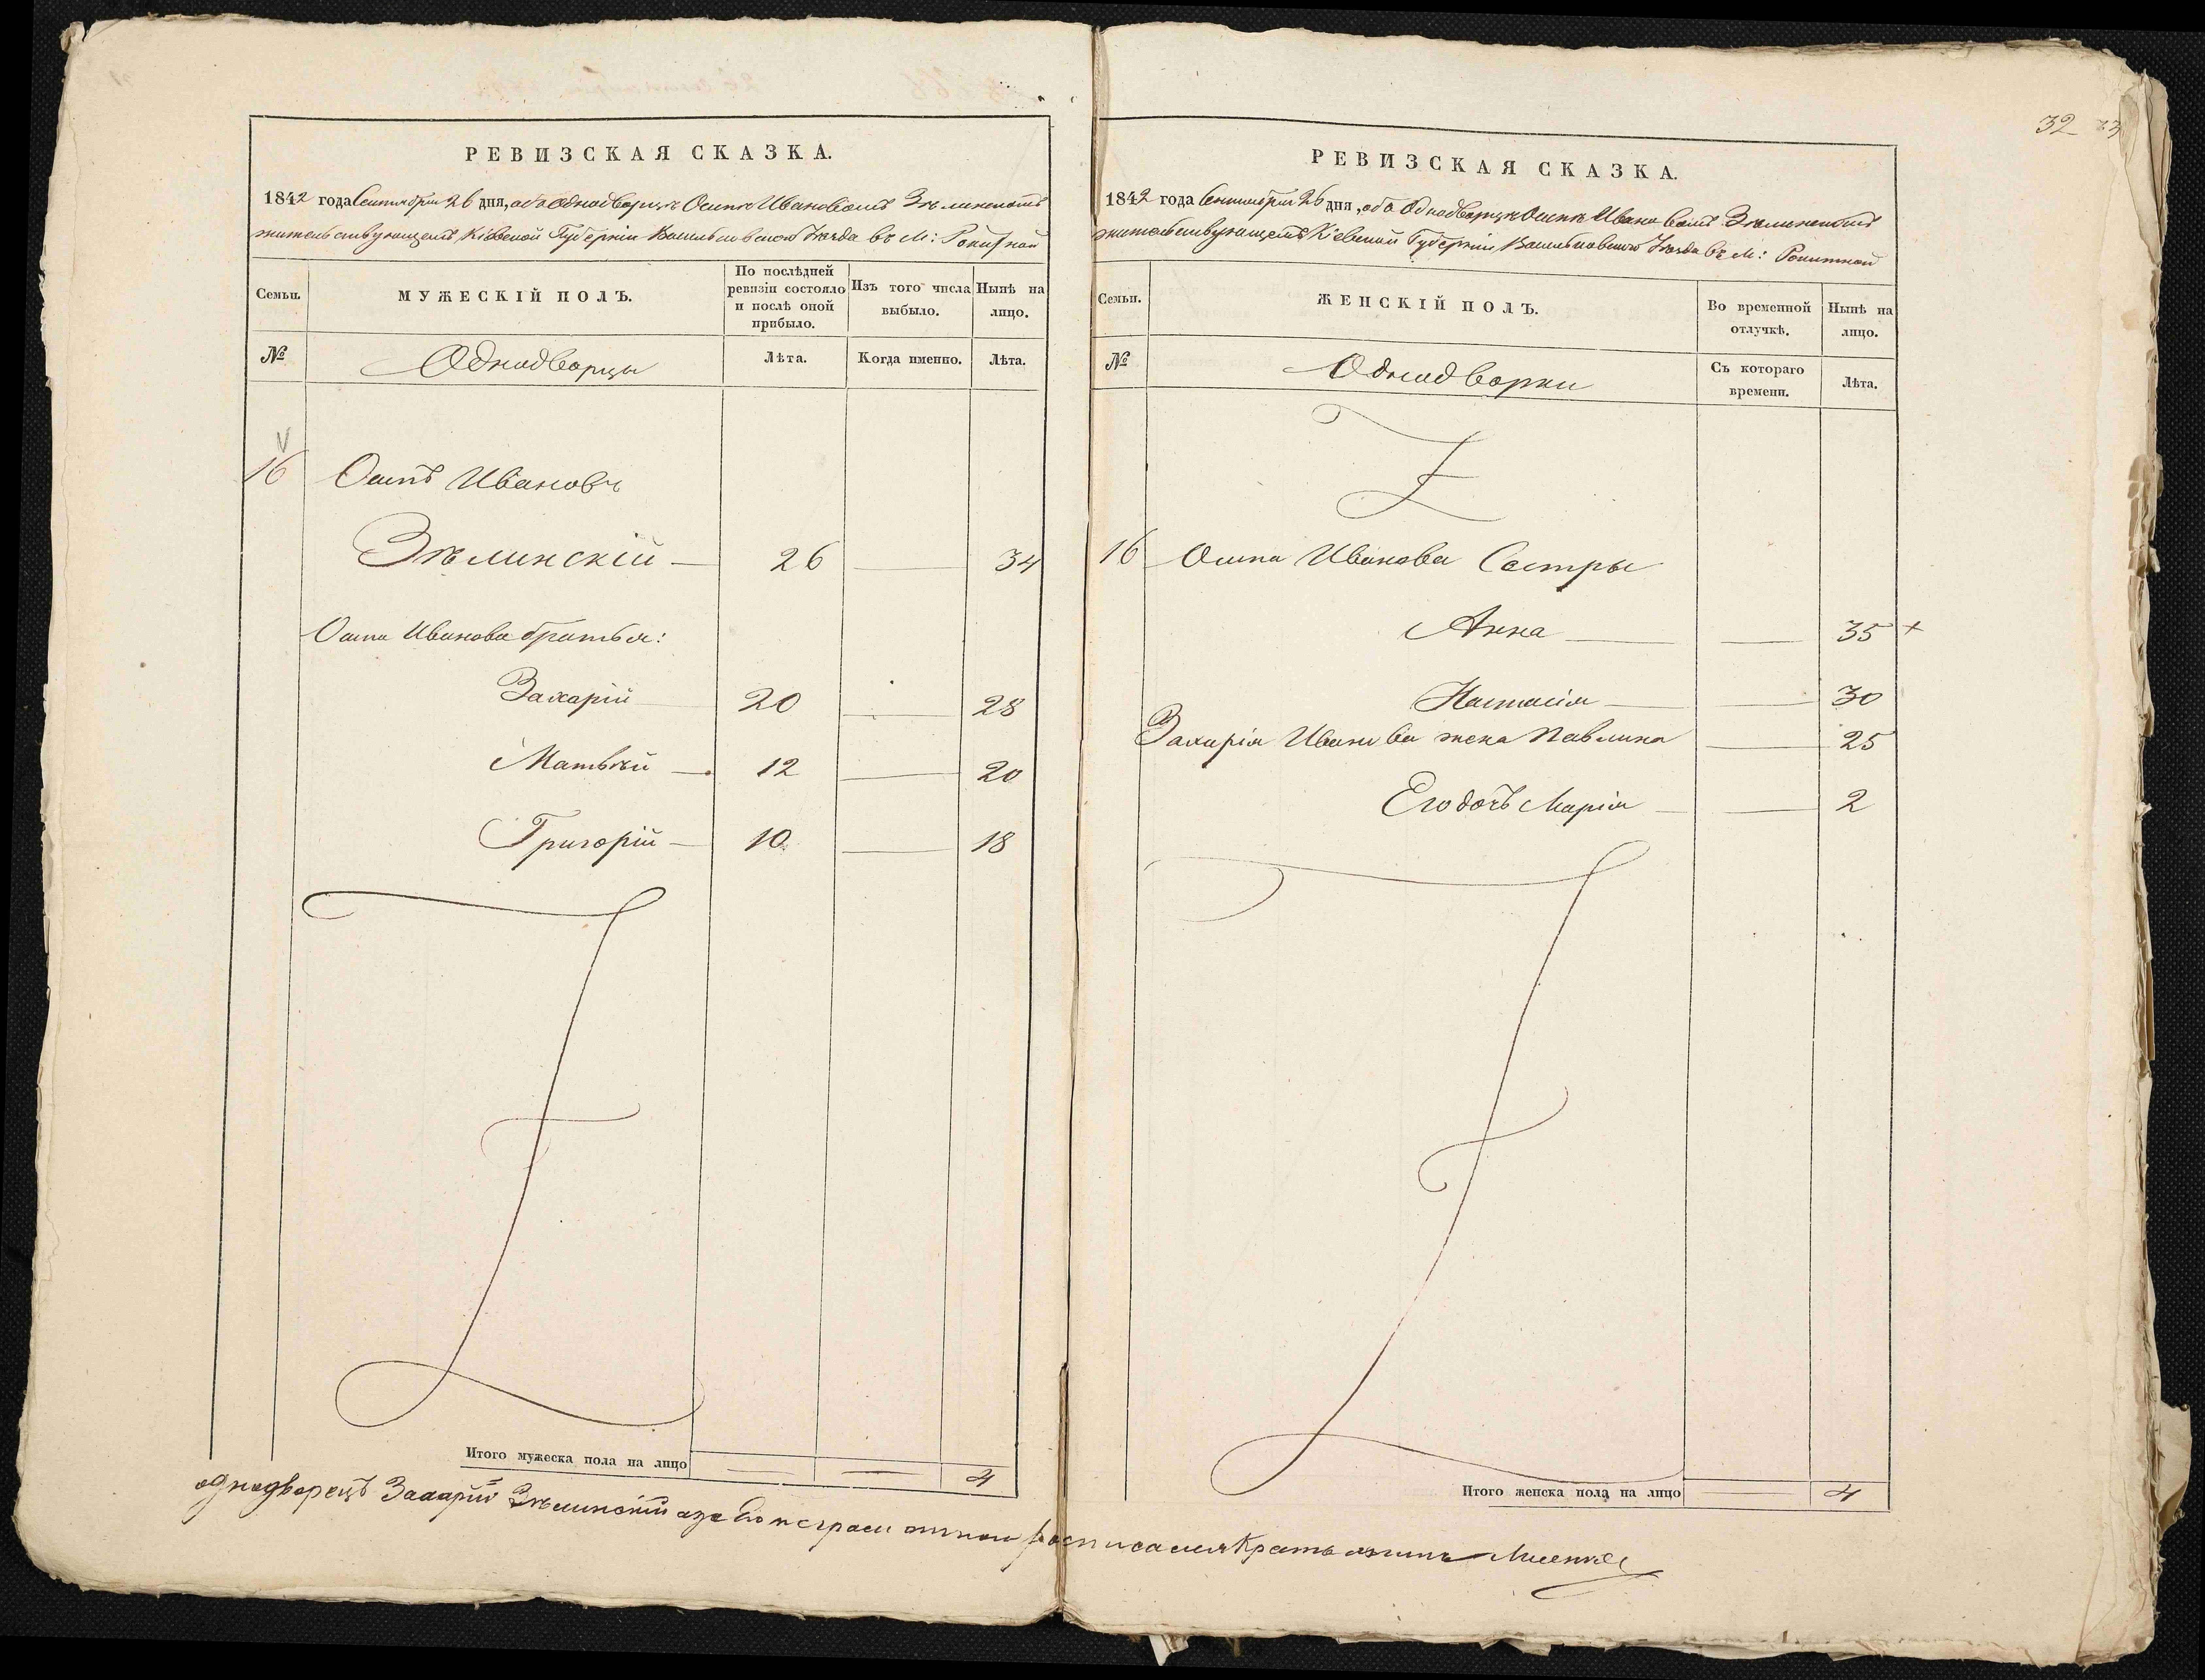 РЕВИЗСКАЯ СКАЗКА.
1842 года Сентября 26 дня, объ Однодворцѣ Осипѣ Ивановомъ Зѣлинскомъ
жительствующемъ Кіевской Губерніи Васильковского Уѣзда въ М: Рокитной
Семьи.
МУЖЕСКІЙ ПОЛЪ.
По послѣдней ревизіи состояло и послѣ оной прибыло.
Изъ того числа выбыло.
Нынѣ на лицо.
№
Однодворцы
Лѣта.
Когда именно.
Лѣта.
16 Осипъ Ивановъ
Зѣлинскій — 26 — 34
Осипа Иванова братья:
Захарій 20 — 28
Матвѣй — 12 — 20
Григорій — 10 — 18
Итого мужеска пола на лицо — — 4
32
РЕВИЗСКАЯ СКАЗКА.
1842 года Сентября 26 дня, объ Однодворцѣ Осипѣ Ивановомъ Зѣлинскомъ
жительствующемъ Кіевской Губерніи Васильковского Уѣзда въ М: Рокитной
Семьи.
ЖЕНСКІЙ ПОЛЪ.
Во временной отлучкѣ.
Нынѣ на лицо.
№
Однодворки
Съ котораго времени.
Лѣта.
16 Осипа Иванова Сестры
Анна — — 35 +
Настасія — — 30
Захарія Иванова жена Павлина — 25
Его дочь Марія — — 2
Итого женска пола на лицо — 4
однодворецъ Захарій Зѣлинскій а за его росписался